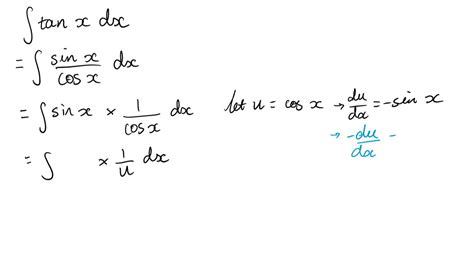 ∫ tan x dx
= ∫ sin x / cos x dx
= ∫ sin x × 1/cos x dx let u = cos x → du/dx = -sin x
= ∫ × 1/u dx → -du/dx =